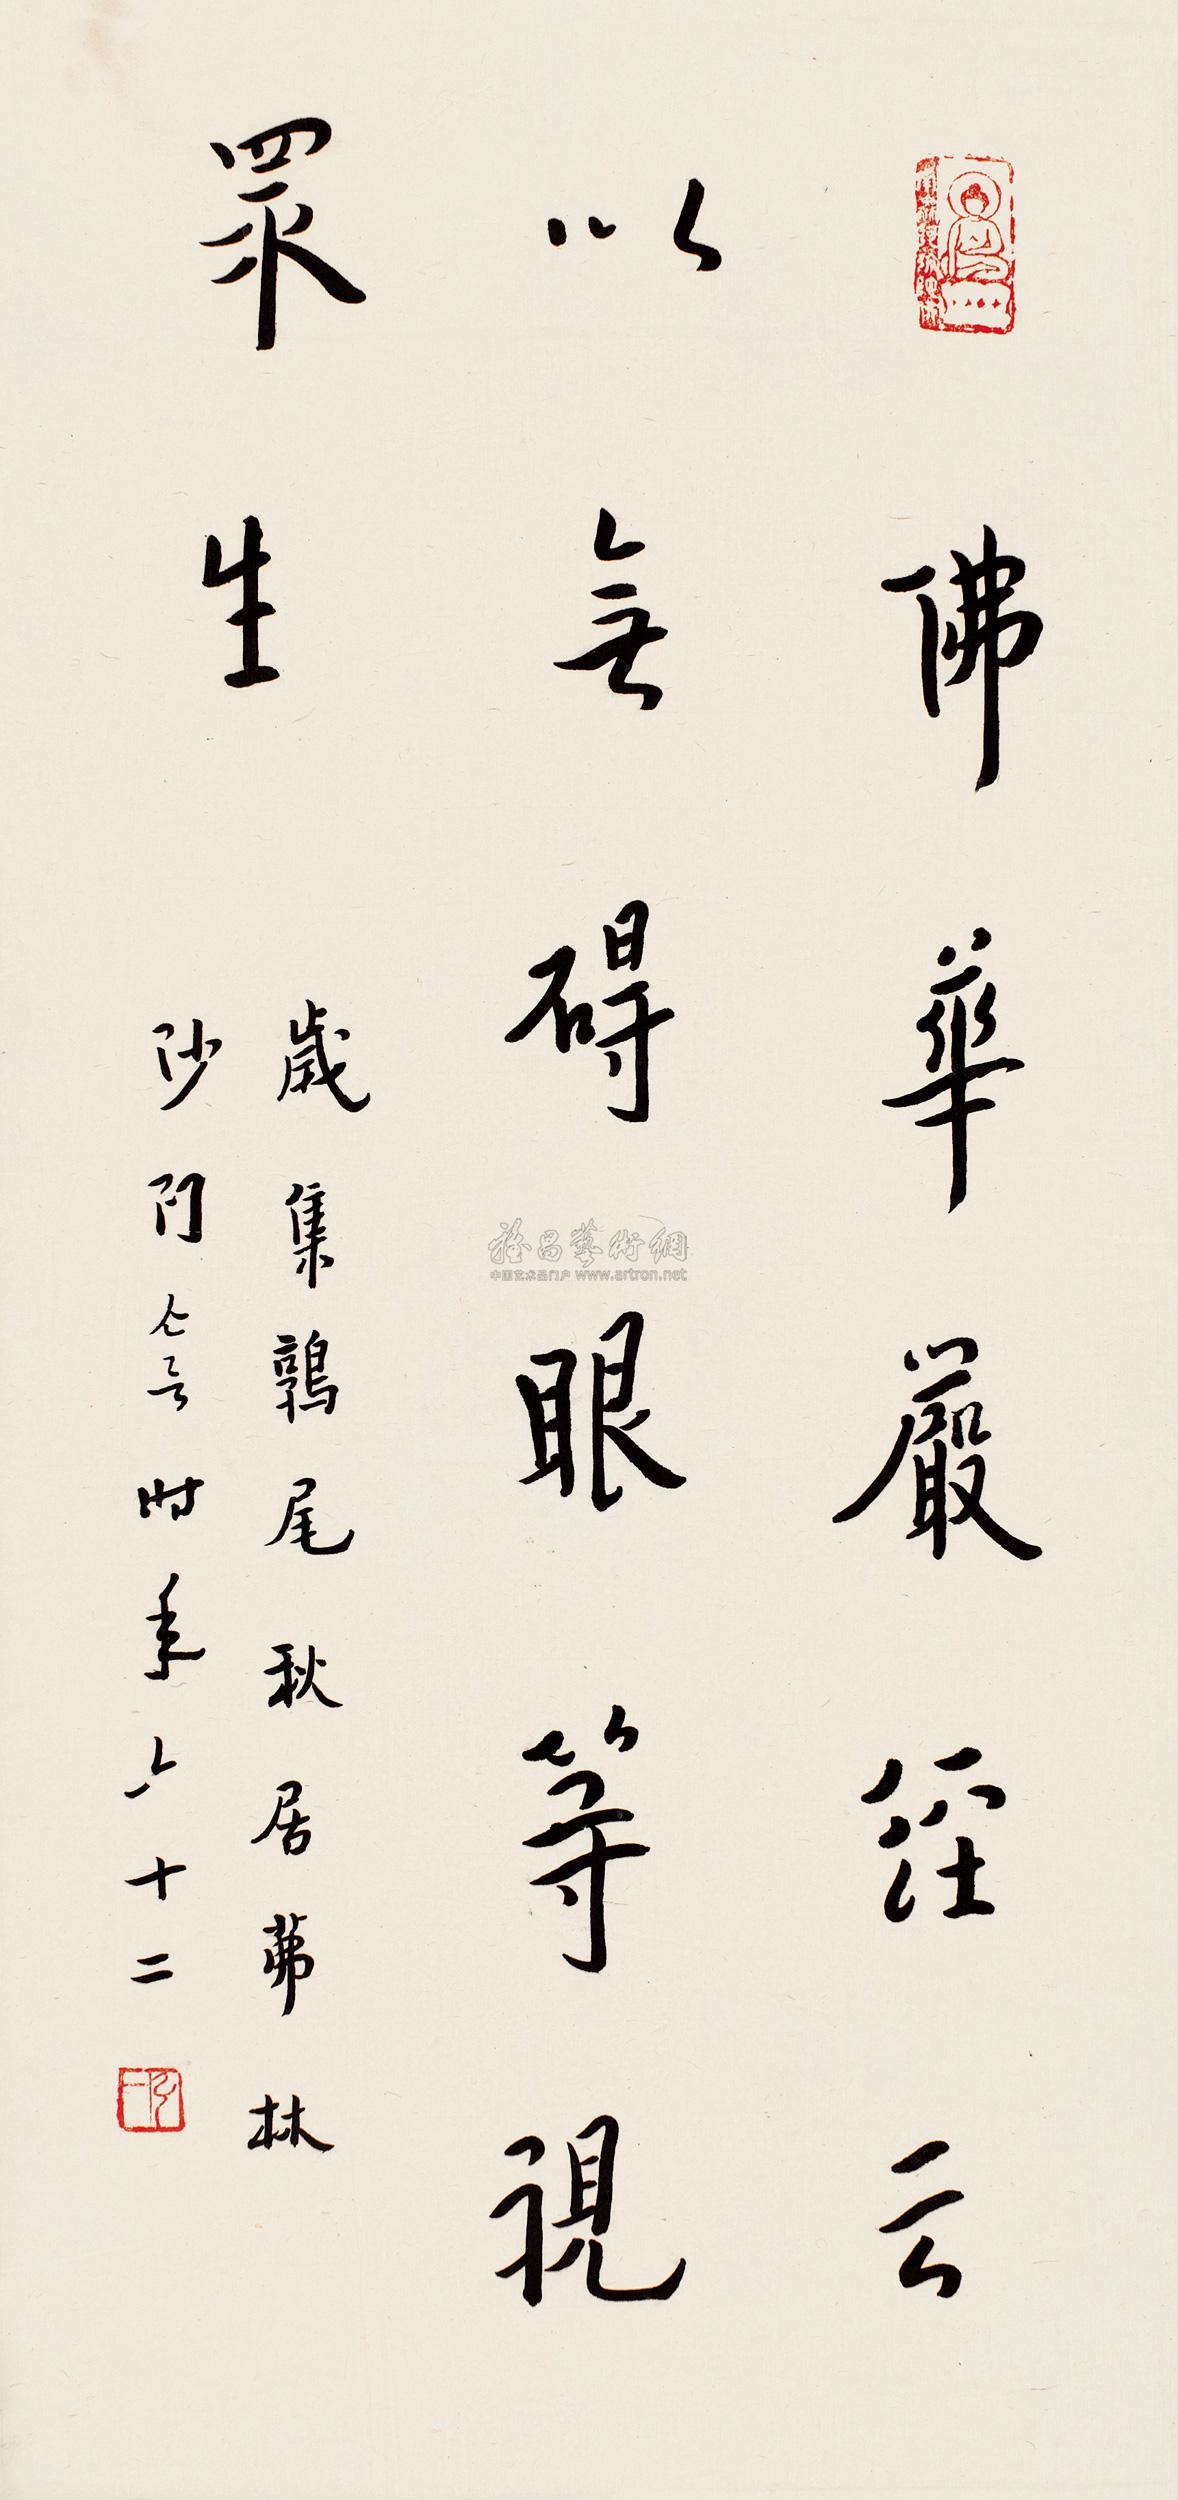 佛華嚴經云
以無礙眼等視
眾生
歲集鶉尾秋居茀林
沙門亡言時年六十二
雅昌藝術網
中国艺术品门户 www.artron.net